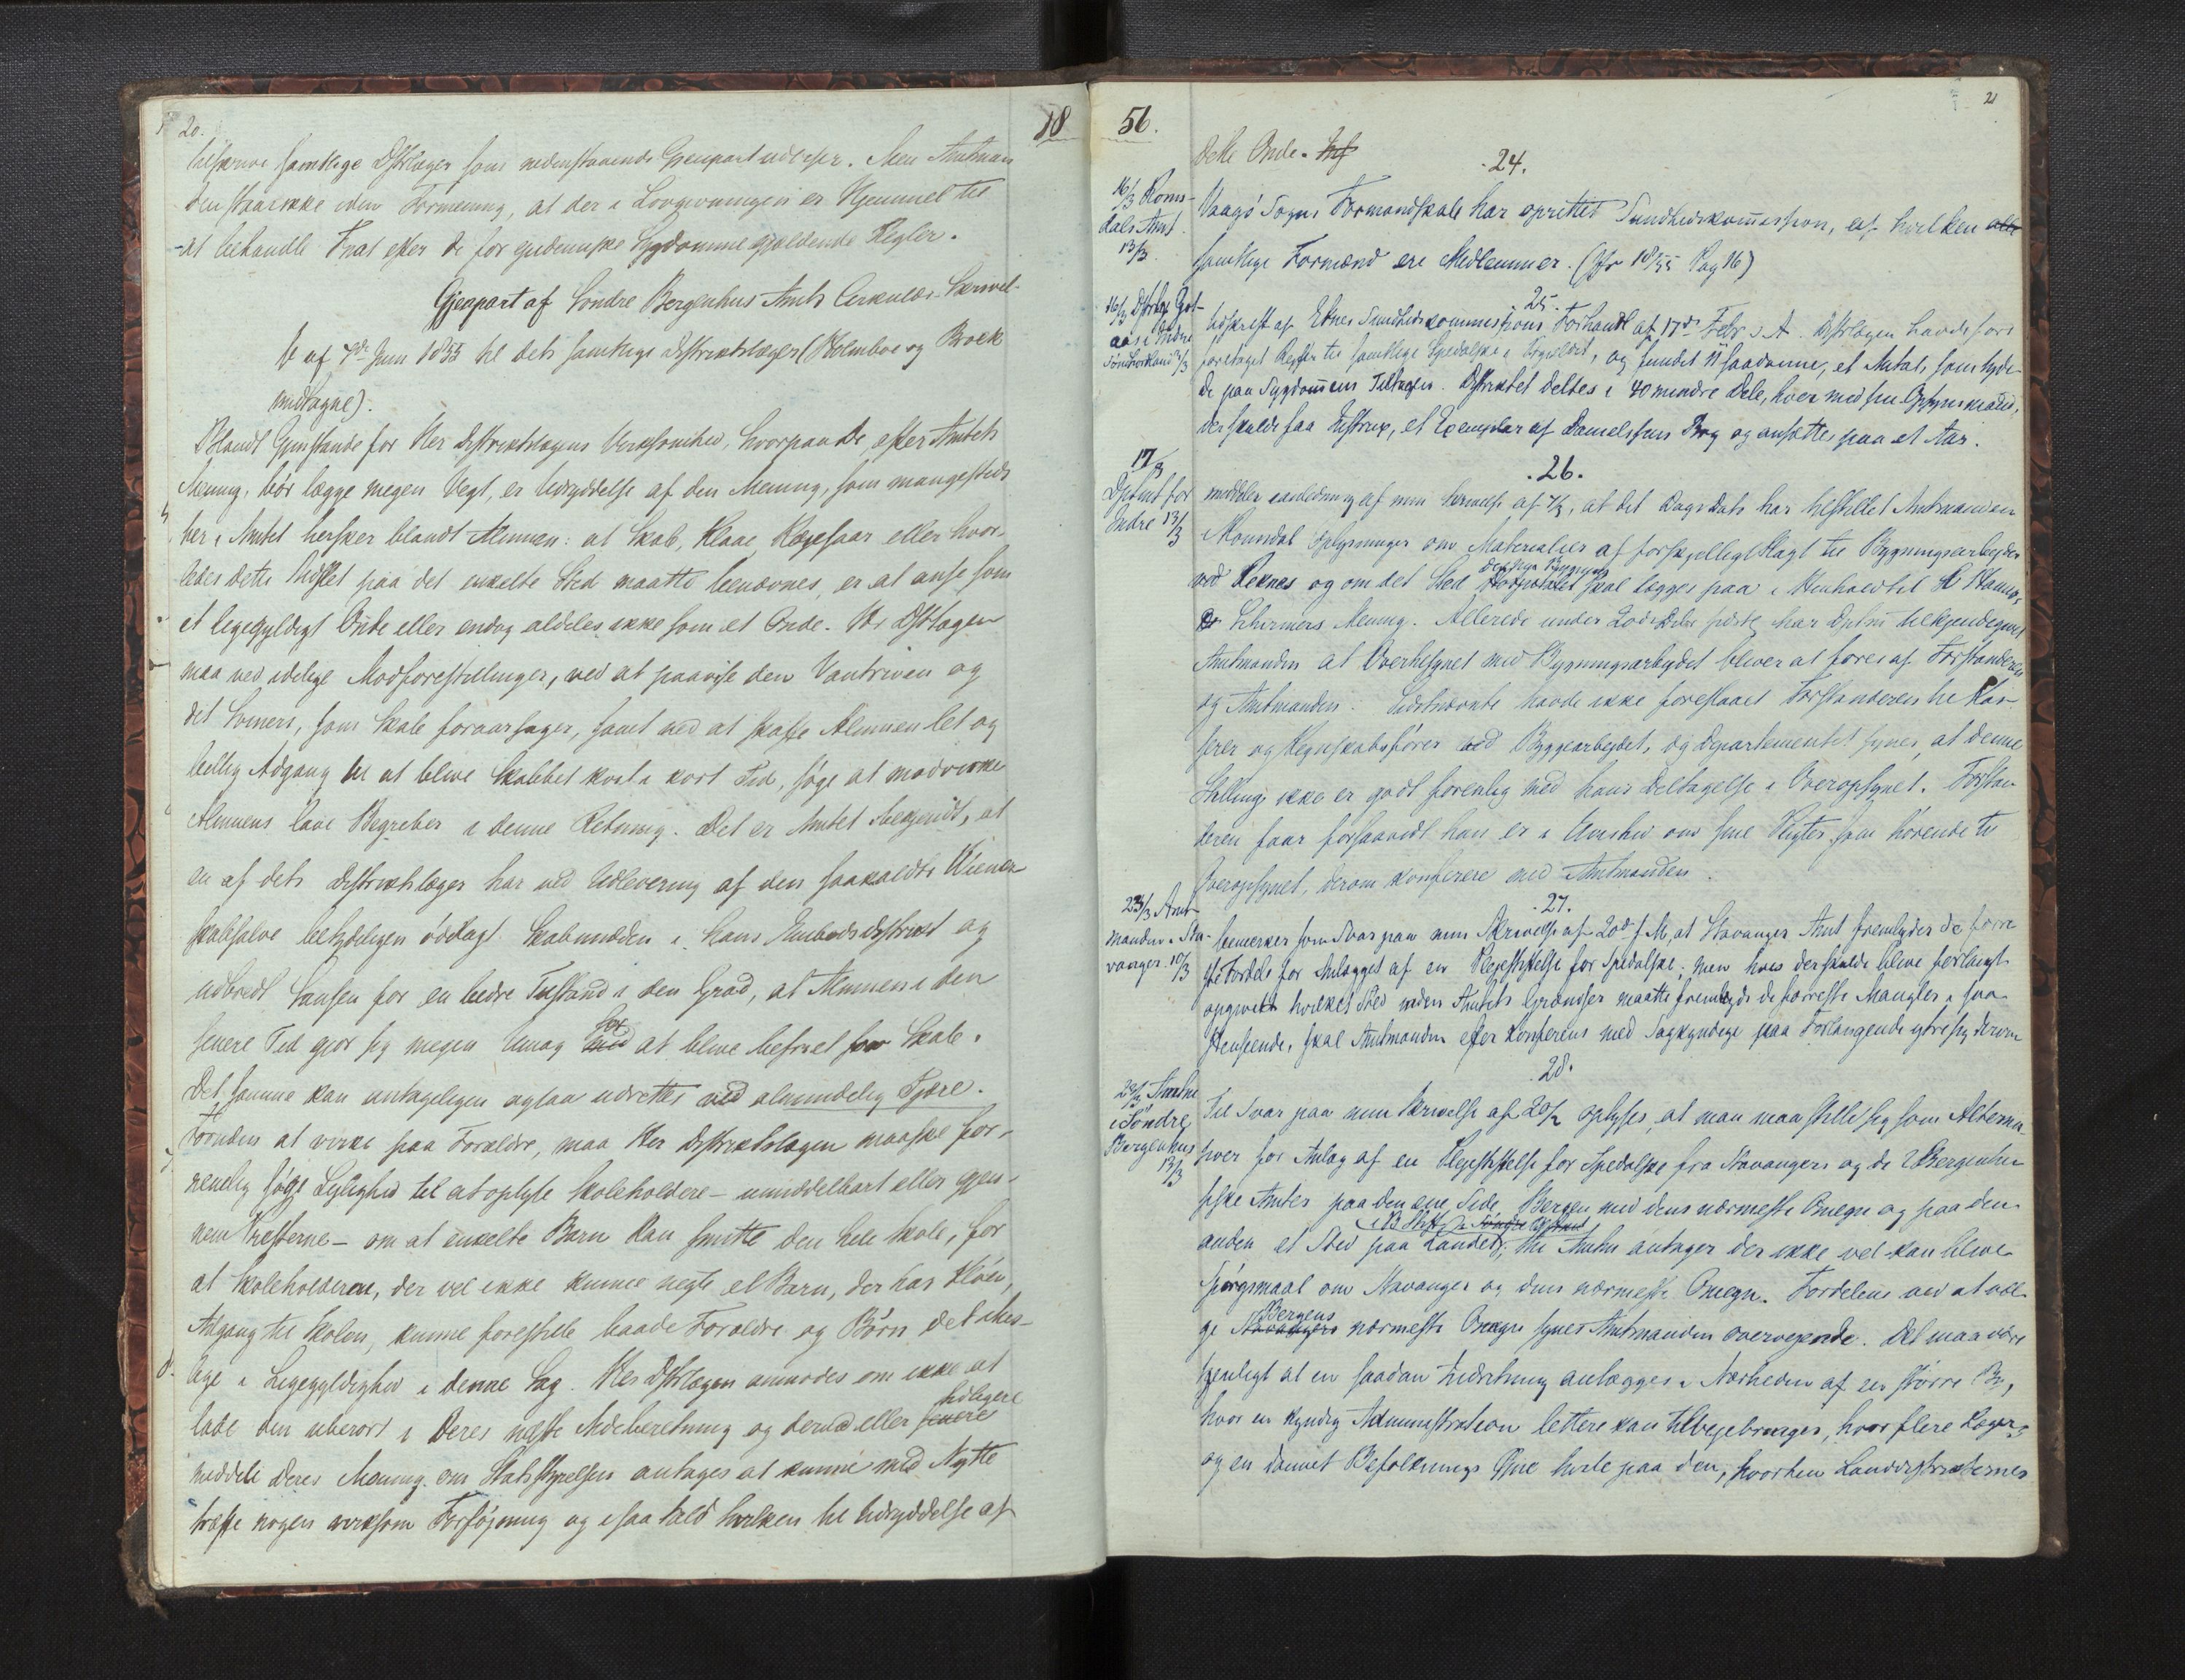 20.
18
tilskrive samtlige Dstrlæger som nedenstaaende Gjenpart udviser. Men Amtman
den staar ikke i den Formening, at der i Lovgivningen er Hjemmel til
at behandle Fnat efter de for epidemiske Sygdomme gjældende Regler.
Gjenpart af Søndre Bergenhus Amts Cirkulær-Skrivel-
se af 7de Juni 1855 til dets samtlige Distriktslæger (Holmboe og Brock
undtagne).
Blandt Gjenstande for Hr Distriktslægens Virksomhed, hvorpaa De, efter Amtets
Mening, bør lægge megen Vegt, er Udryddelse af den Mening, som mangesteds
her i Amtet hersker blandt Almuen: at Skab, Klaae Kløesaar eller hvor-
ledes dette Udslet paa det enkelte Sted maatte benævnes, er at anse som
et ligegyldigt Onde eller endog aldeles ikke som et Onde. Hr Dstlægen
maa ved idelige Modforestillinger, ved at paavise den Vantriven og
det Svineri, som Skab foraarsager, samt ved at skaffe Almuen let og
billig Adgang til at blive Skabbet kvit i kort Tid, søge at modvirke
Almuens lave Begreber i denne Retning. Det er Amtet bekjendt, at
en af dets Distriktslæger har ved Udlevering af den saakaldte Wiener
skabsalve betydeligen ødelagt Skabmidden i hans Embedsdistrikt og
udbredt Sansen for en bedre Tilstand i den Grad, at Almuen i den
senere Tid gjør sig megen Umag for at blive befriet for Skab.
Det samme kan antageligen ogsaa udrettes ved almindelig Tjære.
Foruden at virke paa Forældre, maa Her Distriktslægen maaske for-
nemlig søge Leilighed til at oplyse Skoleholdere - umiddelbart eller gjen-
nem Præsterne - om at enkelte Barn kan smitte den hele Skole, for
at Skoleholderen, der vel ikke kunne negte et Barn, der har Kløen,
Adgang til Skolen, kunne forestille baade Forældre og Børn det ikke
lige i Ligegyldighed i denne Sag. Her Dstrlægen anmodes om ikke at
tidligere
lade den uberørt i Deres næste Aarsberetning og derved eller senere
meddele Deres Mening om Statsstyrelsen antages at kunne med Nytte
træffe nogen virksom Forføjning og i saa Fald hvilken til Udryddelse af
56.
21
dette Onde. Inf
24.
16/3 Roms-
dals Amt
13/3.
Vaagø Sogns Formandskab har oprettet Sundhedskommission, af hvilken alle
samtlige Formænd ere Medlemmer. (Jfr 18/55 Pag 16)
25.
16/3 Dstrlæge Got-
aas i Indre
Søndhordland 8/3
Udskrift af Etnes Sundhedskommissions Forhandl af 17de Febr d. A. Dstrlægen havde fore
foretaget Reiser til samtlige Spedalske i Præsteg, og fundet 11 saadanne, et Antal, som tyde-
de paa Sygdommens Tiltagen. Distriktet deltes i 40 mindre Dele, hver med sin Opsynsmand,
der skulde faa Instrux, et Exemplar af Danielssens Bog og ansættes paa et Aar.
26.
17/3
Dptmt for
Indre 13/3
meddeler i anledning af min Skrivelse af 7/3, at det Dags Dato har tilstillet Amtmanden
i Romsdal Oplysninger om Materialier af forskjelligt Slags til Bygningsarbejder
den nye Bygning
ved Reknes og om det Sted Hospitalet skal lægges paa i Henhold til
Schirmers Mening. Allerede under 20de Dcbr sidste har Dptmt tilkjendegivet
Amtmanden at Overtilsynet med Bygningsarbejdet bliver at føres af Forstanderen
og Amtmanden. Sidstnævnte havde ikke foreslaaet Forstanderen til Kas-
serer og Regnskabsfører ved Byggearbejdet, og Departementet synes, at denne
Stilling ikke er godt forenlig med hans Deltagelse i Overopsynet. Forstan
deren faar forsaavidt han er i Uvished om sine Pligter som hørende til
Overopsynet, derom konferere med Amtmanden.
27.
23/3 Amt-
manden i Sta-
vanger 10/3
bemærker som Svar paa min Skrivelse af 20de f. M, at Stavanger Amt frembyder de fore
ste Fordele for Anlægget af en Plejestiftelse for Spedalske; men hvis der skulde blive forlangt
opgivet hvilket Sted inden Amtets Grændser maatte frembyde de færreste Mangler i saa
Henseende, skal Amtmanden efter Konferens med Sagkyndige paa Forlangende ytre sig derom
28.
23/3 Amtm
i Søndre
Bergenhus
13/3
Til Svar paa min Skrivelse af 20/2 oplyses, at man maa stille sig som Alterna-
tiver for Anlæg af en Plejestiftelse for Spedalske fra Stavangers og de 2 Bergenhu
siske Amter paa den ene Side Bergen med dens nærmeste Omegn og paa den
anden et Sted paa Landet, thi Amtm antager der ikke vel kan blive
Spørgsmaal om Stavanger og dens nærmeste Omegn. Fordelene ved at væl-
Bergens
ge Stavangers nærmeste Omegn synes Amtmanden overvejende. Det maa være
tjenligt at en saadan Indretning anlægges i Nærheden af en større By,
hvor en kyndig Administration lettere kan tilvejebringes, hvor flere Læger
og en dannet Befolknings Øjne hvile paa den, hvorhen Landdistrikternes